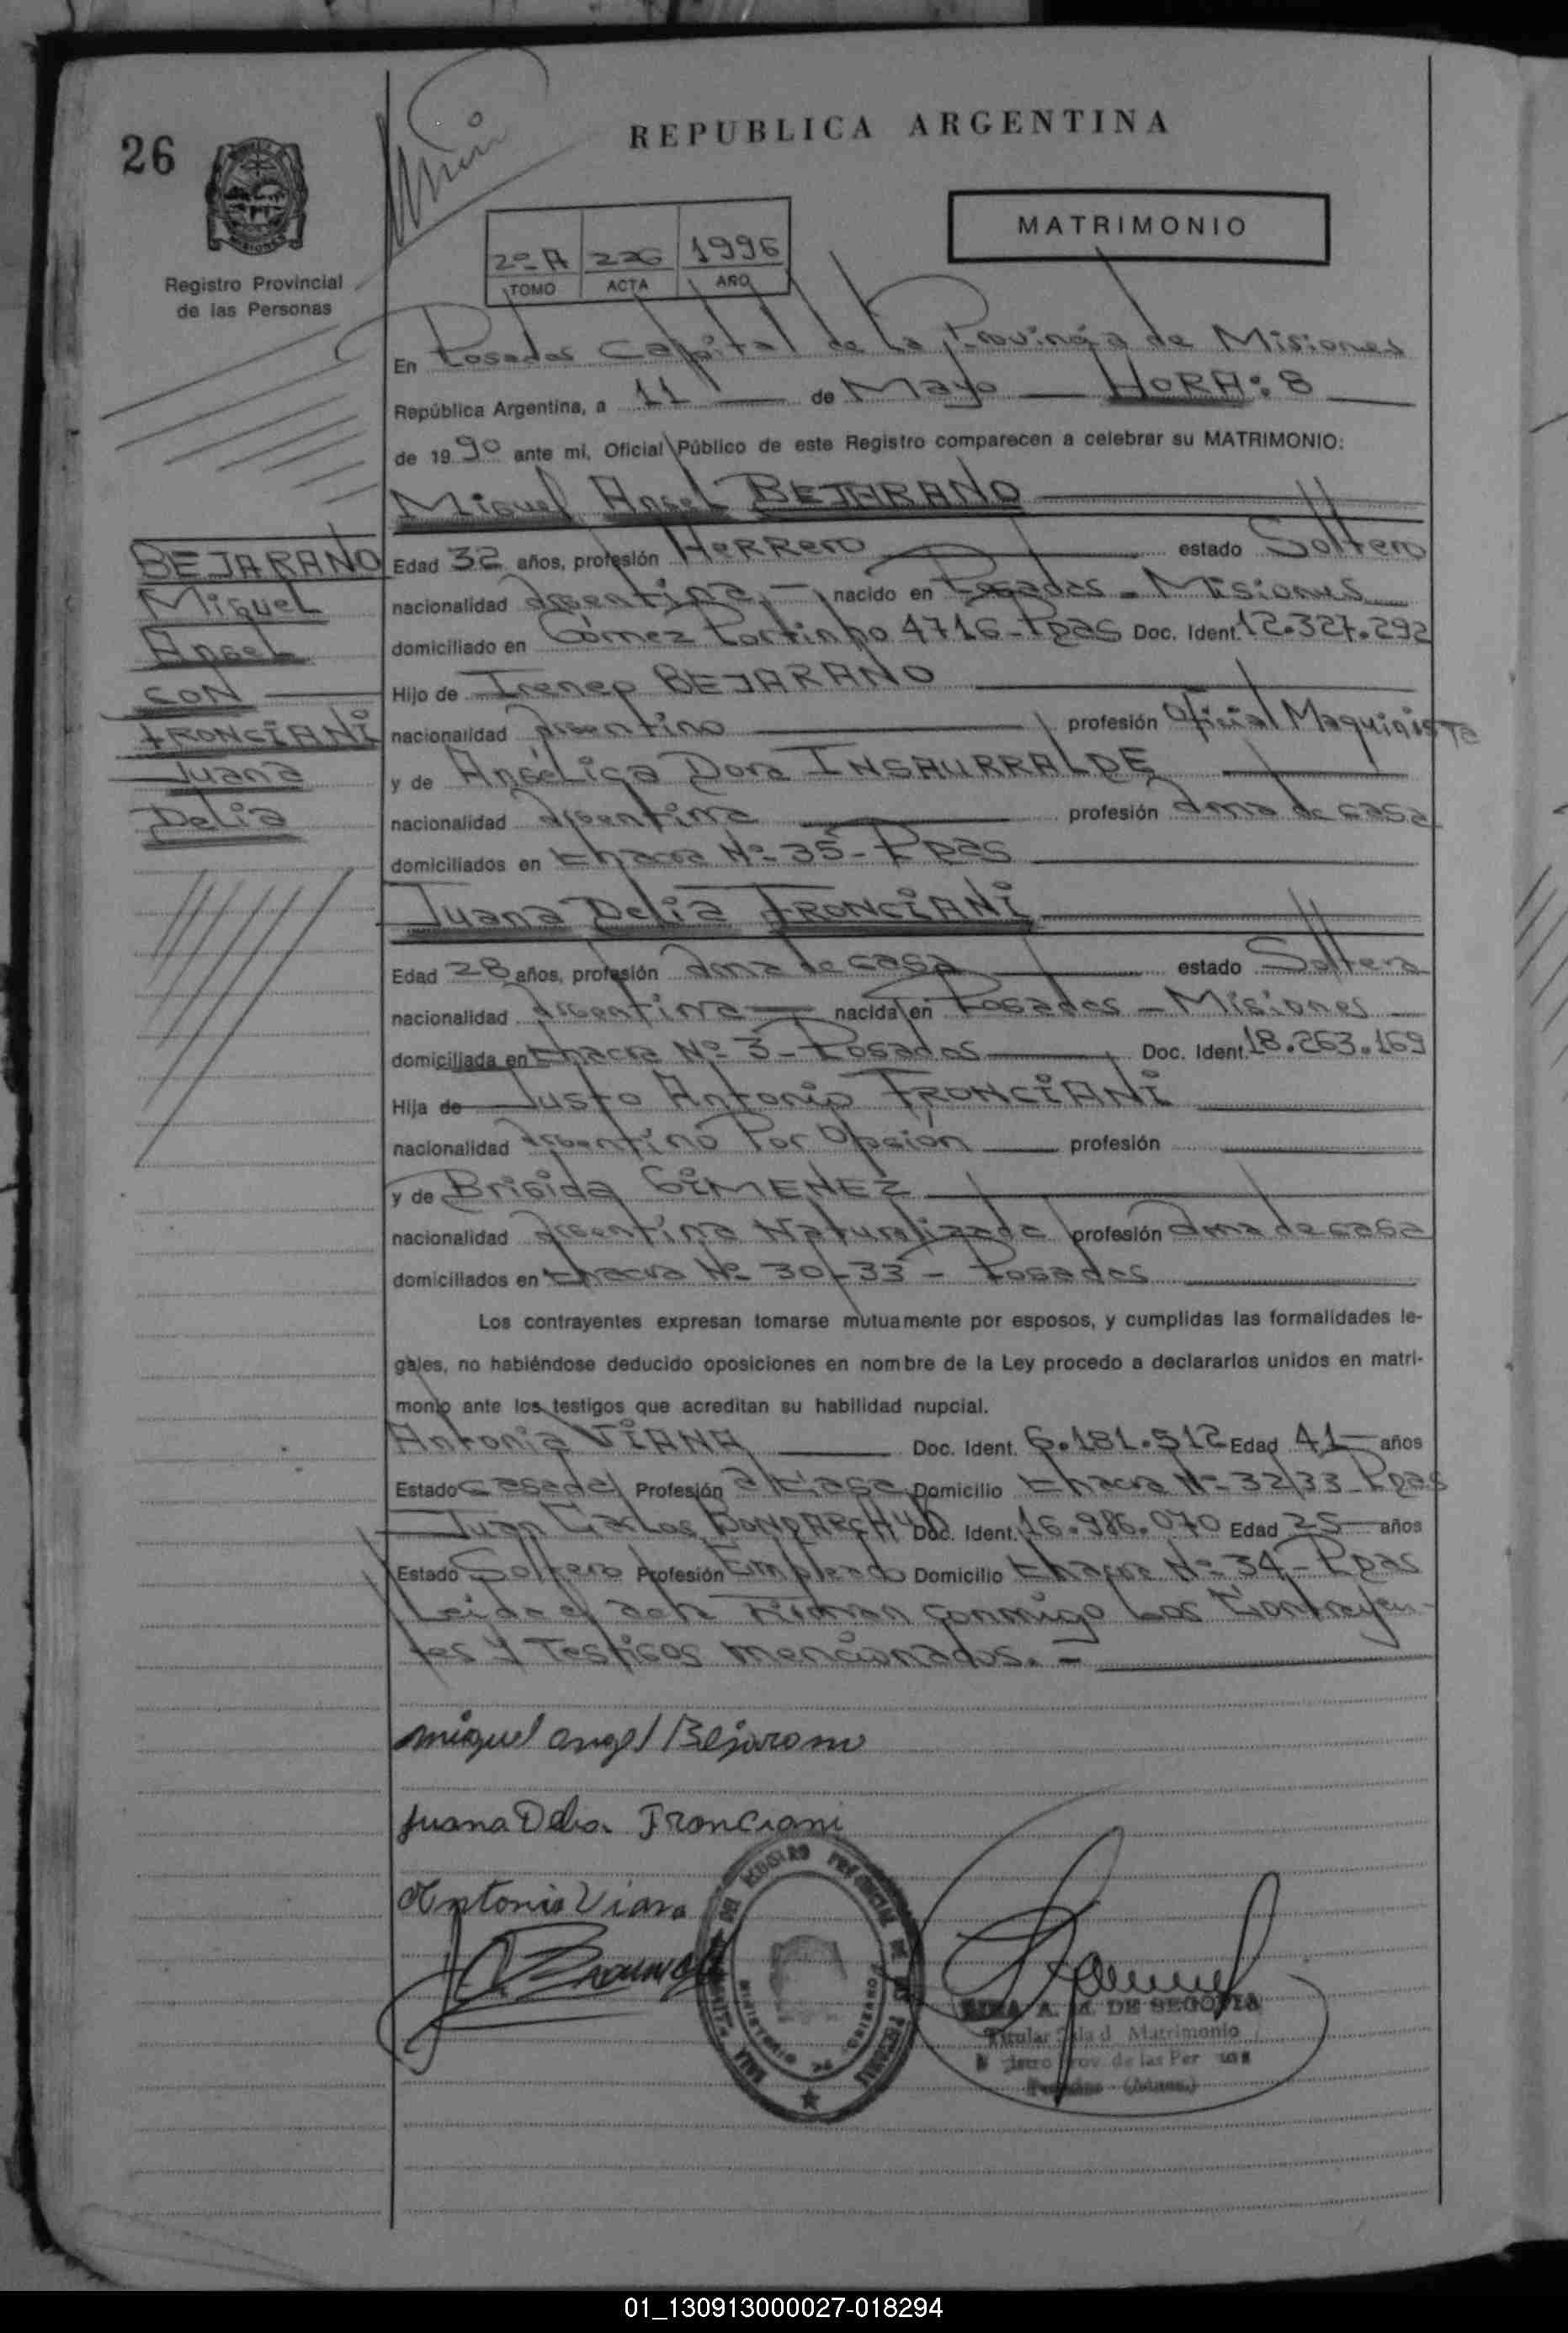 26
REPUBLICA ARGENTINA
MATRIMONIO
Registro Provincial
de las Personas
2º A 226 1996
TOMO ACTA AÑO
En Posadas Capital de la Provincia de Misiones
República Argentina, a 11 de Mayo HORA: 8
de 1990 ante mi, Oficial Público de este Registro comparecen a celebrar su MATRIMONIO:
Miguel Angel BEJARANO
BEJARANO
Miguel
Angel
CON
FRONCIANI
Juana
Delia
Edad 32 años, profesión Herrero estado Soltero
nacionalidad Argentina nacido en Posadas - Misiones
domiciliado en Gómez Portinho 4716 - Pdas Doc. Ident. 12.327.292
Hijo de Ireneo BEJARANO
nacionalidad Argentino profesión Oficial Maquinista
y de Angélica Dora INSAURRALDE
nacionalidad Argentina profesión Ama de casa
domiciliados en Chacra Nº 35 - Pdas
Juana Delia FRONCIANI
Edad 28 años, profesión Ama de casa estado Soltera
nacionalidad Argentina nacida en Posadas - Misiones
domiciliada en Chacra Nº 3 - Posadas Doc. Ident. 18.263.169
Hija de Justo Antonio FRONCIANI
nacionalidad Argentino Por Opción profesión
y de Brigida GIMENEZ
nacionalidad Argentina Naturalizada profesión Ama de casa
domiciliados en Chacra Nº 30-33 - Posadas
Los contrayentes expresan tomarse mutuamente por esposos, y cumplidas las formalidades le-
gales, no habiéndose deducido oposiciones en nombre de la Ley procedo a declararlos unidos en matri-
monio ante los testigos que acreditan su habilidad nupcial.
Antonia VIANA Doc. Ident. 6.181.512 Edad 41 años
Estado Casada Profesión A/Casa Domicilio Chacra Nº 32/33 - Pdas
Juan Carlos Doc. Ident. 16.986.070 Edad 25 años
Estado Soltero Profesión Empleado Domicilio Chacra Nº 34 - Pdas
Leida el acta Firman conmigo Los Contrayen-
tes y Testigos mencionados. -
Miguel Angel Bejarano
Juana Delia Fronciani
Antonia Viana
A. M. DE SEGOVIA
Titular Sala d Matrimonio
01_130913000027-018294